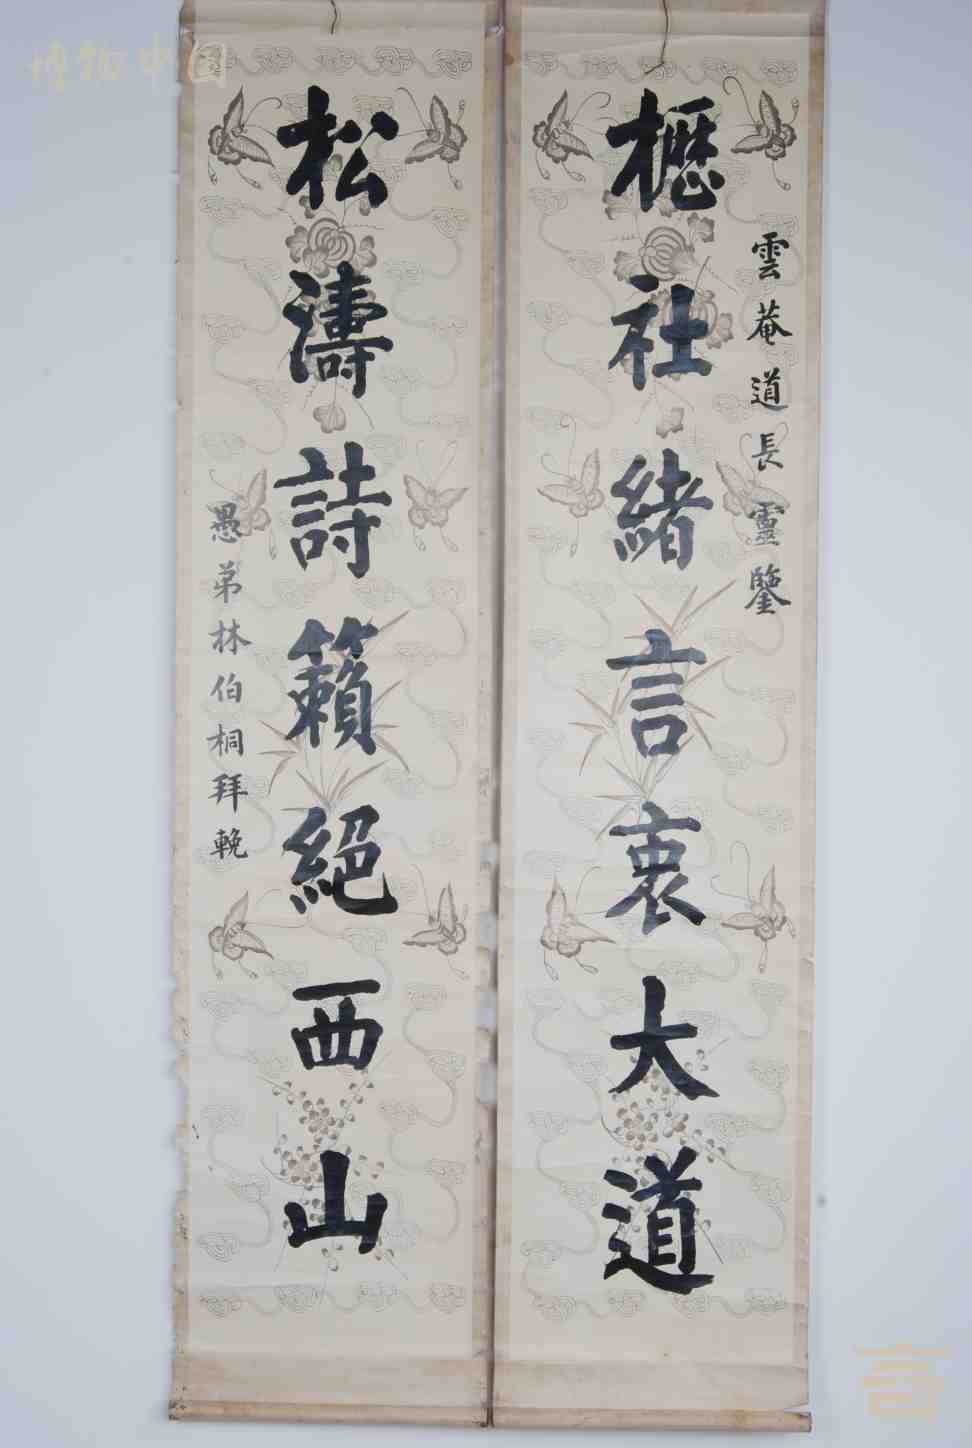 雲菴道長靈鑒
櫪社緒言衷大道
松濤詩籟絕西山
愚弟林伯桐拜輓
博物中国